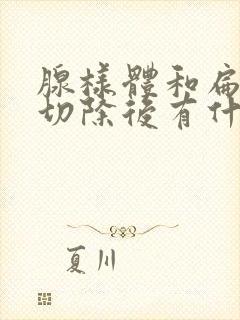 腺樣體和扁
切除後有什
夏川